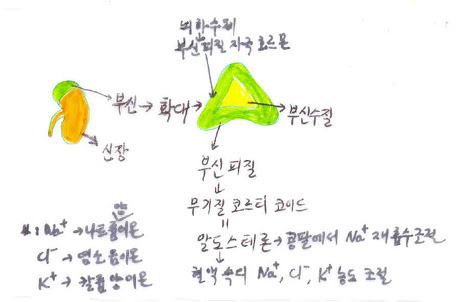 뇌하수체
부신피질 자극 호르몬
부신 → 확대 →
부신수질
신장
부신 피질
무기질 코르티 코이드
알도스테론 → 콩팥에서 Na⁺ 재흡수조절
혈액 속의 Na⁺, Cl⁻, K⁺ 농도 조절
양
※: Na⁺ → 나트륨이온
Cl⁻ → 염소 음이온
K⁺ → 칼륨 양이온